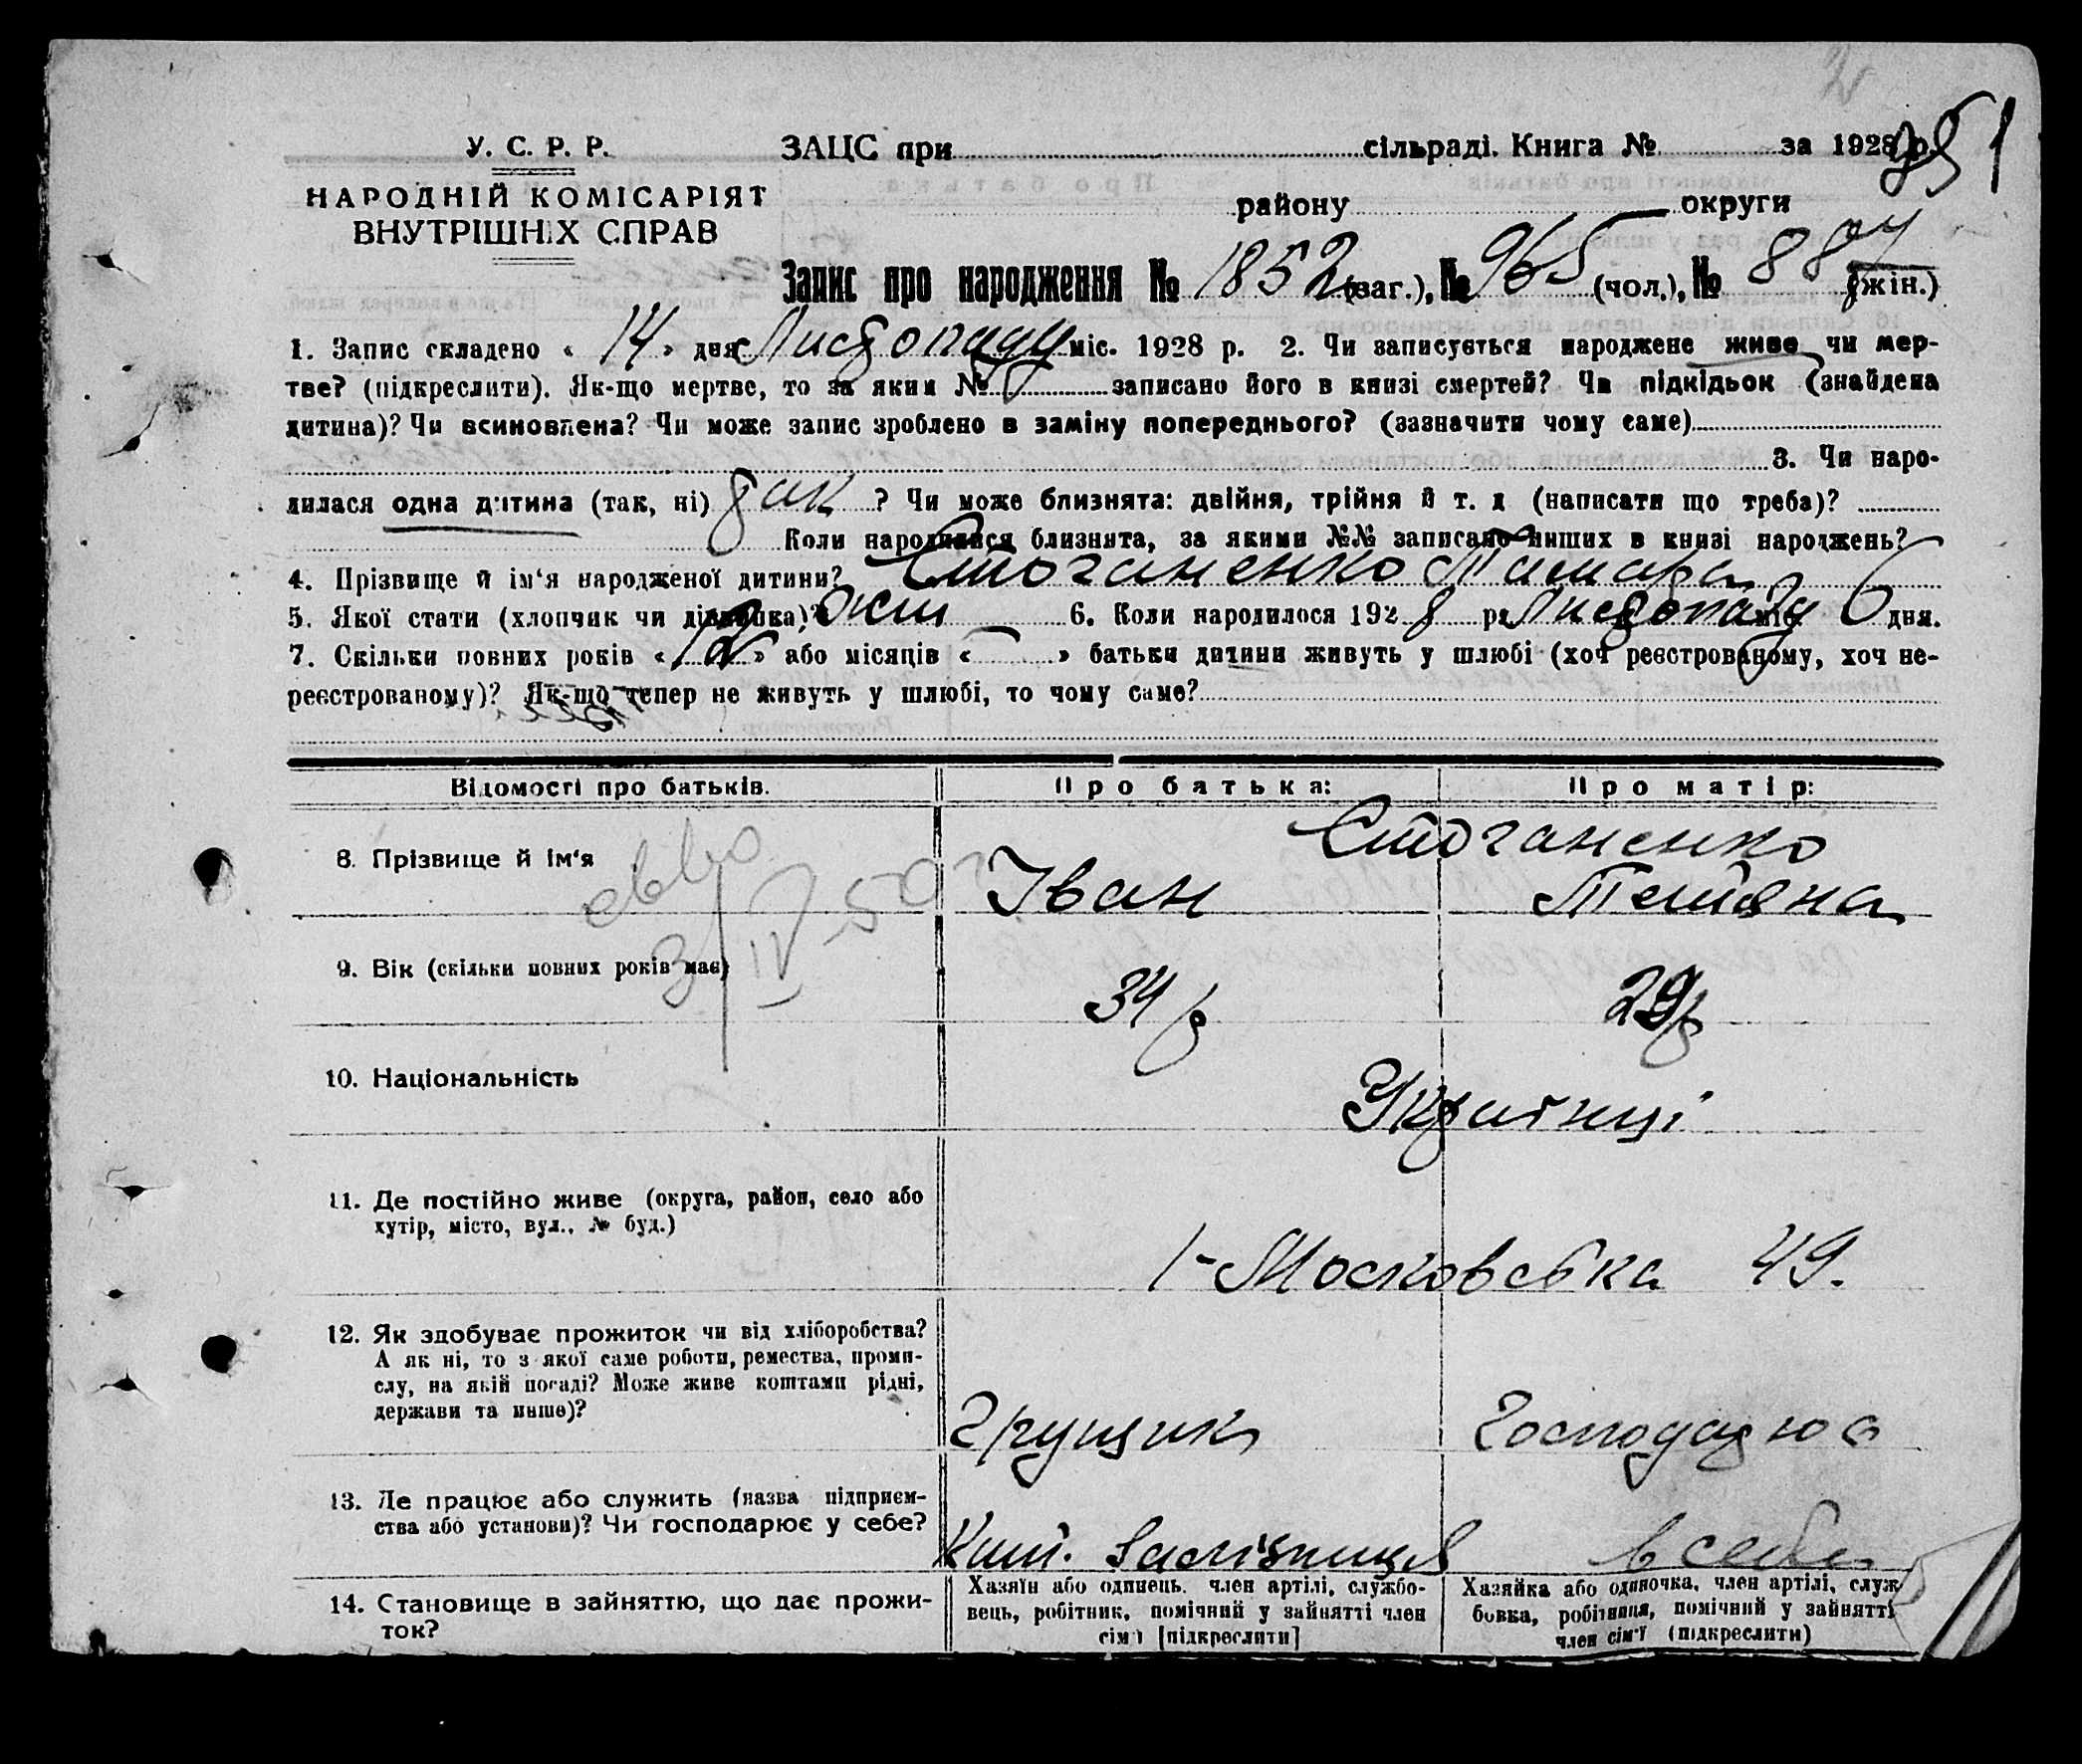 У. С. Р. Р.
НАРОДНІЙ КОМІСАРІЯТ
ВНУТРІШНІХ СПРАВ
ЗАЦС при сільраді. Книга № за 1928 р.
району округи
Запис про народження № 1852 (заг.), № 965 (чол.), № 887 (жін.)
1. Запис складено « 14 » дня Листопаду міс. 1928 р. 2. Чи записується народжене живе чи мер-
тве? (підкреслити). Як-що мертве, то за яким № записано його в книзі смертей? Чи підкідьок (знайдена
дитина)? Чи всиновлена? Чи може запис зроблено в заміну попереднього? (зазначити чому саме)
3. Чи наро-
дилася одна дитина (так, ні) так ? Чи може близнята: двійня, трійня й т. д (написати що треба)?
Коли народилися близнята, за якими №№ записано инших в книзі народжень?
4. Прізвище й ім‘я народженої дитини? Стоганенко Тамара
5. Якої статі (хлопчик чи дівчинка)? жін 6. Коли народилося 1928 р. Листопаду міс. 6 дня.
7. Скільки повних років « » або місяців « » батьки дитини живуть у шлюбі (хоч реєстрованому, хоч не-
реєстрованому)? Як-що тепер не живуть у шлюбі, то чому саме?
Відомості про батьків. Про батька: Про матір:
Стоганенко
8. Прізвище й ім‘я Іван Тетяна
9. Вік (скільки повних років має) 34 р 29 р
10. Національність Українці
11. Де постійно живе (округа, район, село або
хутір, місто, вул., № буд.)
1-Московська 49.
12. Як здобуває прожиток чи від хліборобства?
А як ні, то з якої саме роботи, ремества, проми-
слу, на якій посаді? Може живе коштами рідні,
держави та инше)?
Грущик Господарює
13. Де працює або служить (назва підприєм-
ства або установи)? Чи господарює у себе?
залізниця в себе
14. Становище в зайняттю, що дає прожи-
ток?
Хазяїн або одинець. член артілі, службо-
вець, робітник, помічний у зайнятті член
сім‘ї [підкреслити]
Хазяйка або одиночка, член артілі, служ
бовка, робітниця, помічний у зайнятті
член сім‘ї (підкреслити)